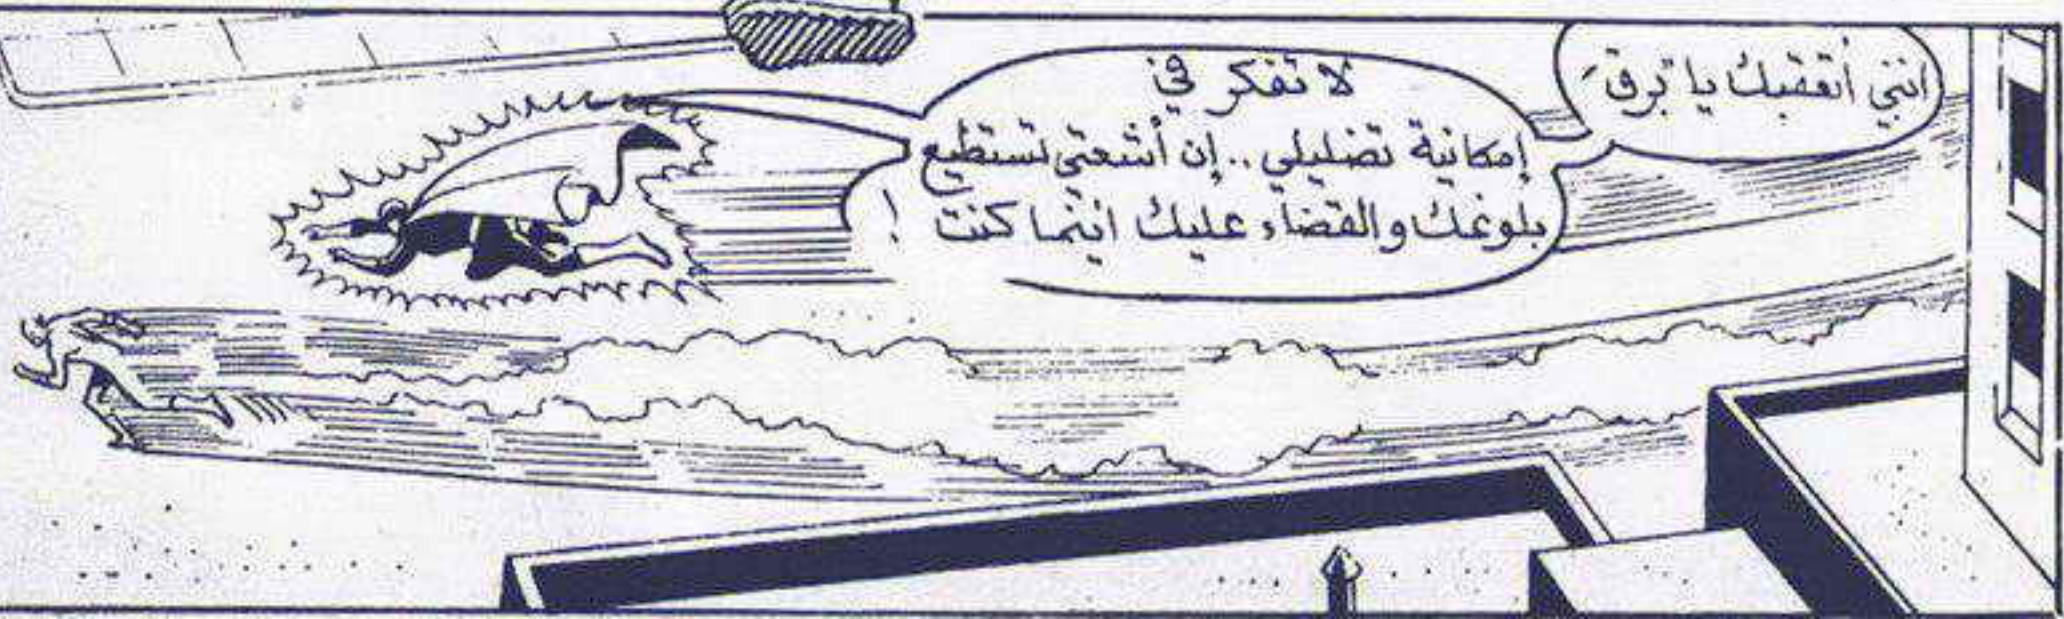 انني أتعقبك يا "برق"
لا تفكر في
إمكانية تضليلي .. إن أشعتي تستطيع
بلوغك والقضاء عليك اينما كنت !